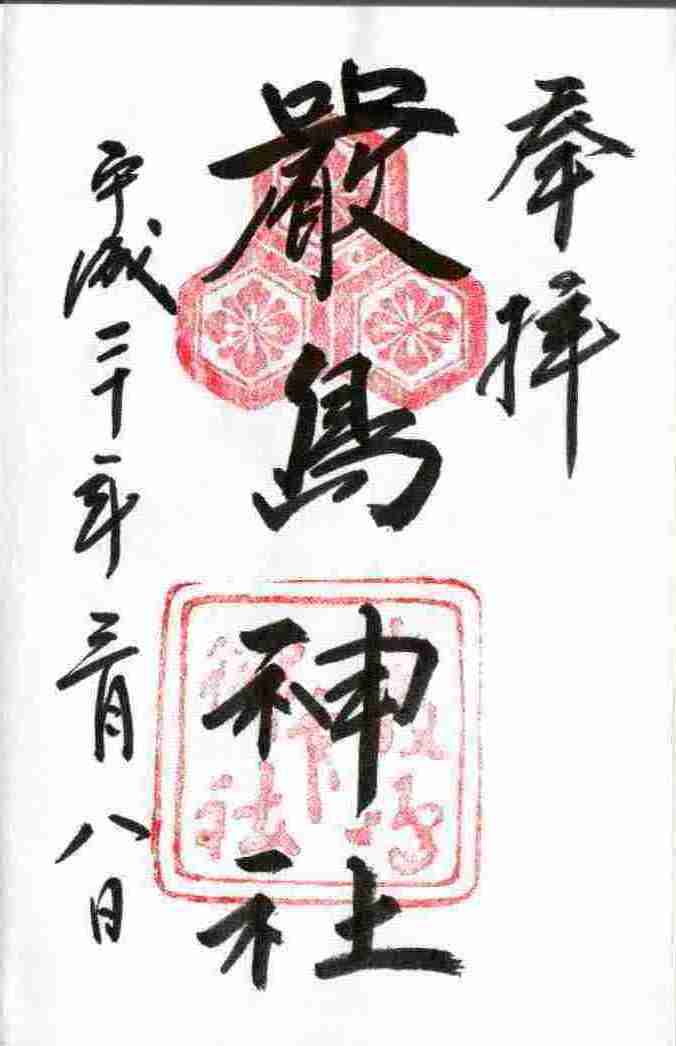 奉拝
嚴島神社
平成二十一年三月八日